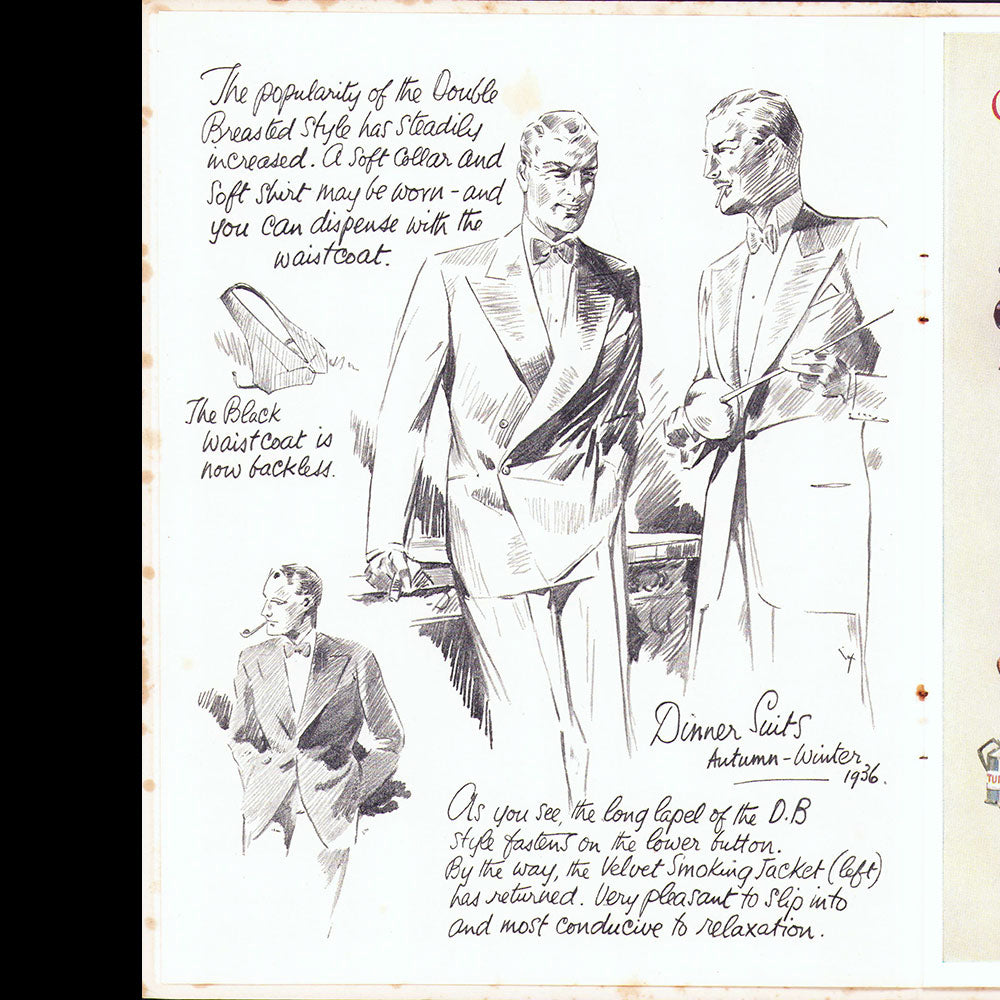 The popularity of the Double
Breasted Style has steadily
increased. A soft collar and
soft shirt may be worn - and
you can dispense with the
waistcoat.
The Black
waistcoat is
now backless.
Dinner Suits
Autumn - Winter
1936.
As you see, the long lapel of the D.B
style fastens on the lower button.
By the way, the Velvet Smoking Jacket (left)
has returned. Very pleasant to slip into
and most conducive to relaxation.